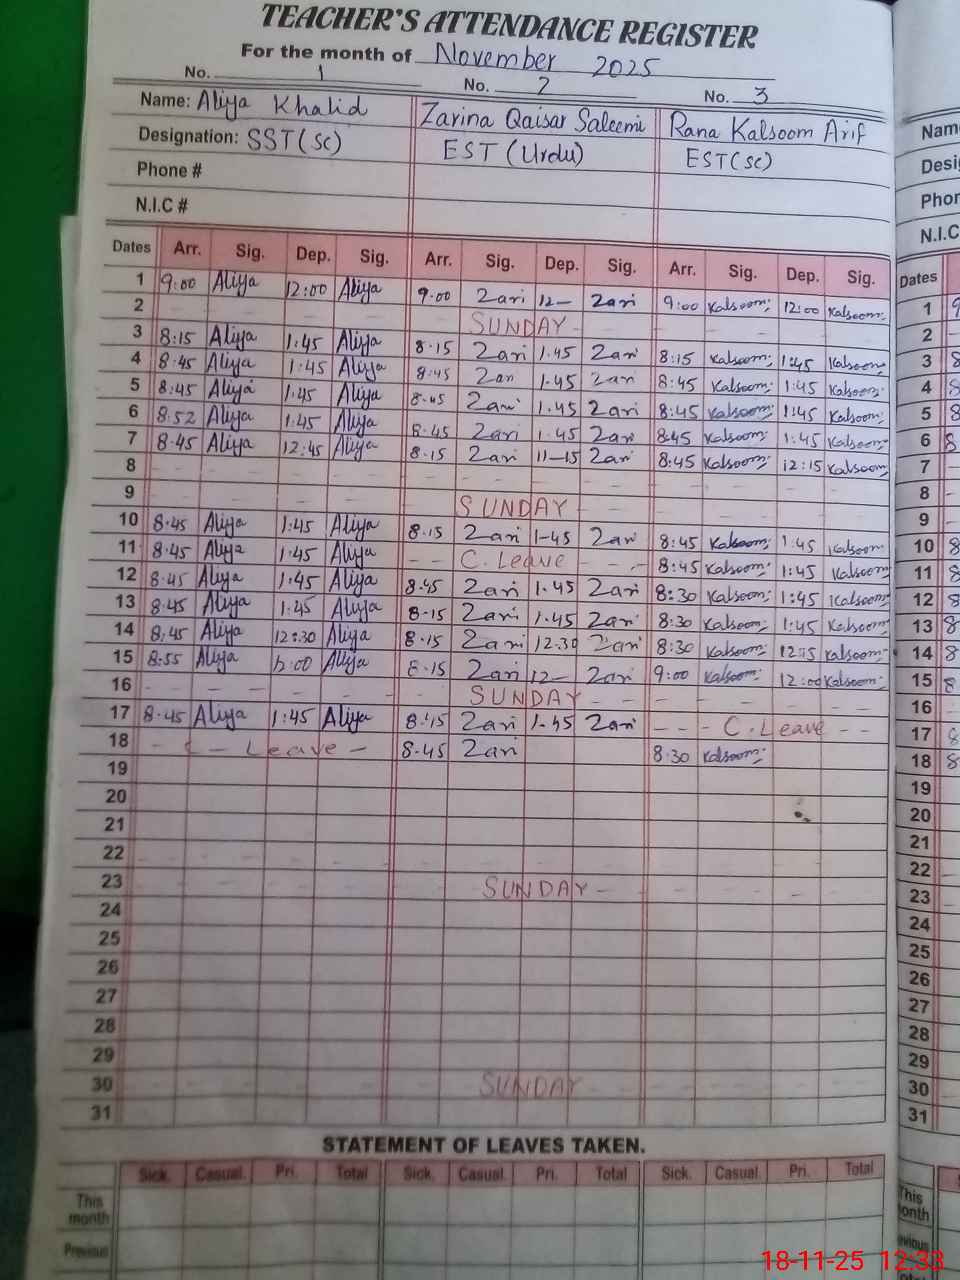 TEACHER'S ATTENDANCE REGISTER
For the month of November 2025
No. 1 No. 2 No. 3
Name: Aliya Khalid Zarina Qaisar Saleemi Rana Kalsoom Arif
Designation: SST(Sc) EST (Urdu) EST(sc)
Phone #
N.I.C #
Dates Arr. Sig. Dep. Sig. Arr. Sig. Dep. Sig. Arr. Sig. Dep. Sig.
1 9:00 Aliya 12:00 Aliya 9.00 Zari 12- Zari 9:00 Kalsoom 12:00 Kalsoom
2 SUNDAY
3 8:15 Aliya 1.45 Aliya 8.15 Zari 1.45 Zari 8:15 Kalsoom 1:45 Kalsoom
4 8.45 Aliya 1:45 Aliya 8:45 Zari 1.45 Zari 8:45 Kalsoom 1:45 Kalsoom
5 8:45 Aliya 1.45 Aliya 8.45 Zari 1.45 Zari 8:45 Kalsoom 1:45 Kalsoom
6 8:52 Aliya 1.45 Aliya 8.45 Zari 1.45 Zari 8:45 Kalsoom 1:45 Kalsoom
7 8.45 Aliya 12:45 Aliya 8.15 Zari 11-15 Zari 8:45 Kalsoom 12:15 Kalsoom
8
9 SUNDAY
10 8.45 Aliya 1:45 Aliya 8.15 Zari 1-45 Zari 8:45 Kalsoom 1:45 Kalsoom
11 8.45 Aliya 1.45 Aliya C. Leave 8:45 Kalsoom 1:45 Kalsoom
12 8.45 Aliya 1.45 Aliya 8.45 Zari 1.45 Zari 8:30 Kalsoom 1:45 Kalsoom
13 8.45 Aliya 1.45 Aliya 8-15 Zari 1.45 Zari 8:30 Kalsoom 1:45 Kalsoom
14 8:45 Aliya 12:30 Aliya 8.15 Zari 12.30 Zari 8:30 Kalsoom 12:15 Kalsoom
15 8:55 Aliya 12:00 Aliya 8.15 Zari 12- Zari 9:00 Kalsoom 12:00 Kalsoom
16 SUNDAY
17 8.45 Aliya 1:45 Aliya 8.15 Zari 1-45 Zari C. Leave
18 C - Leave 8.45 Zari 8.30 Kalsoom
19
20
21
22
23 SUNDAY
24
25
26
27
28
29
30 SUNDAY
31
STATEMENT OF LEAVES TAKEN.
Sick. Casual. Pri. Total Sick. Casual. Pri. Total Sick. Casual. Pri. Total
This month
Previous
18-11-25 12:33